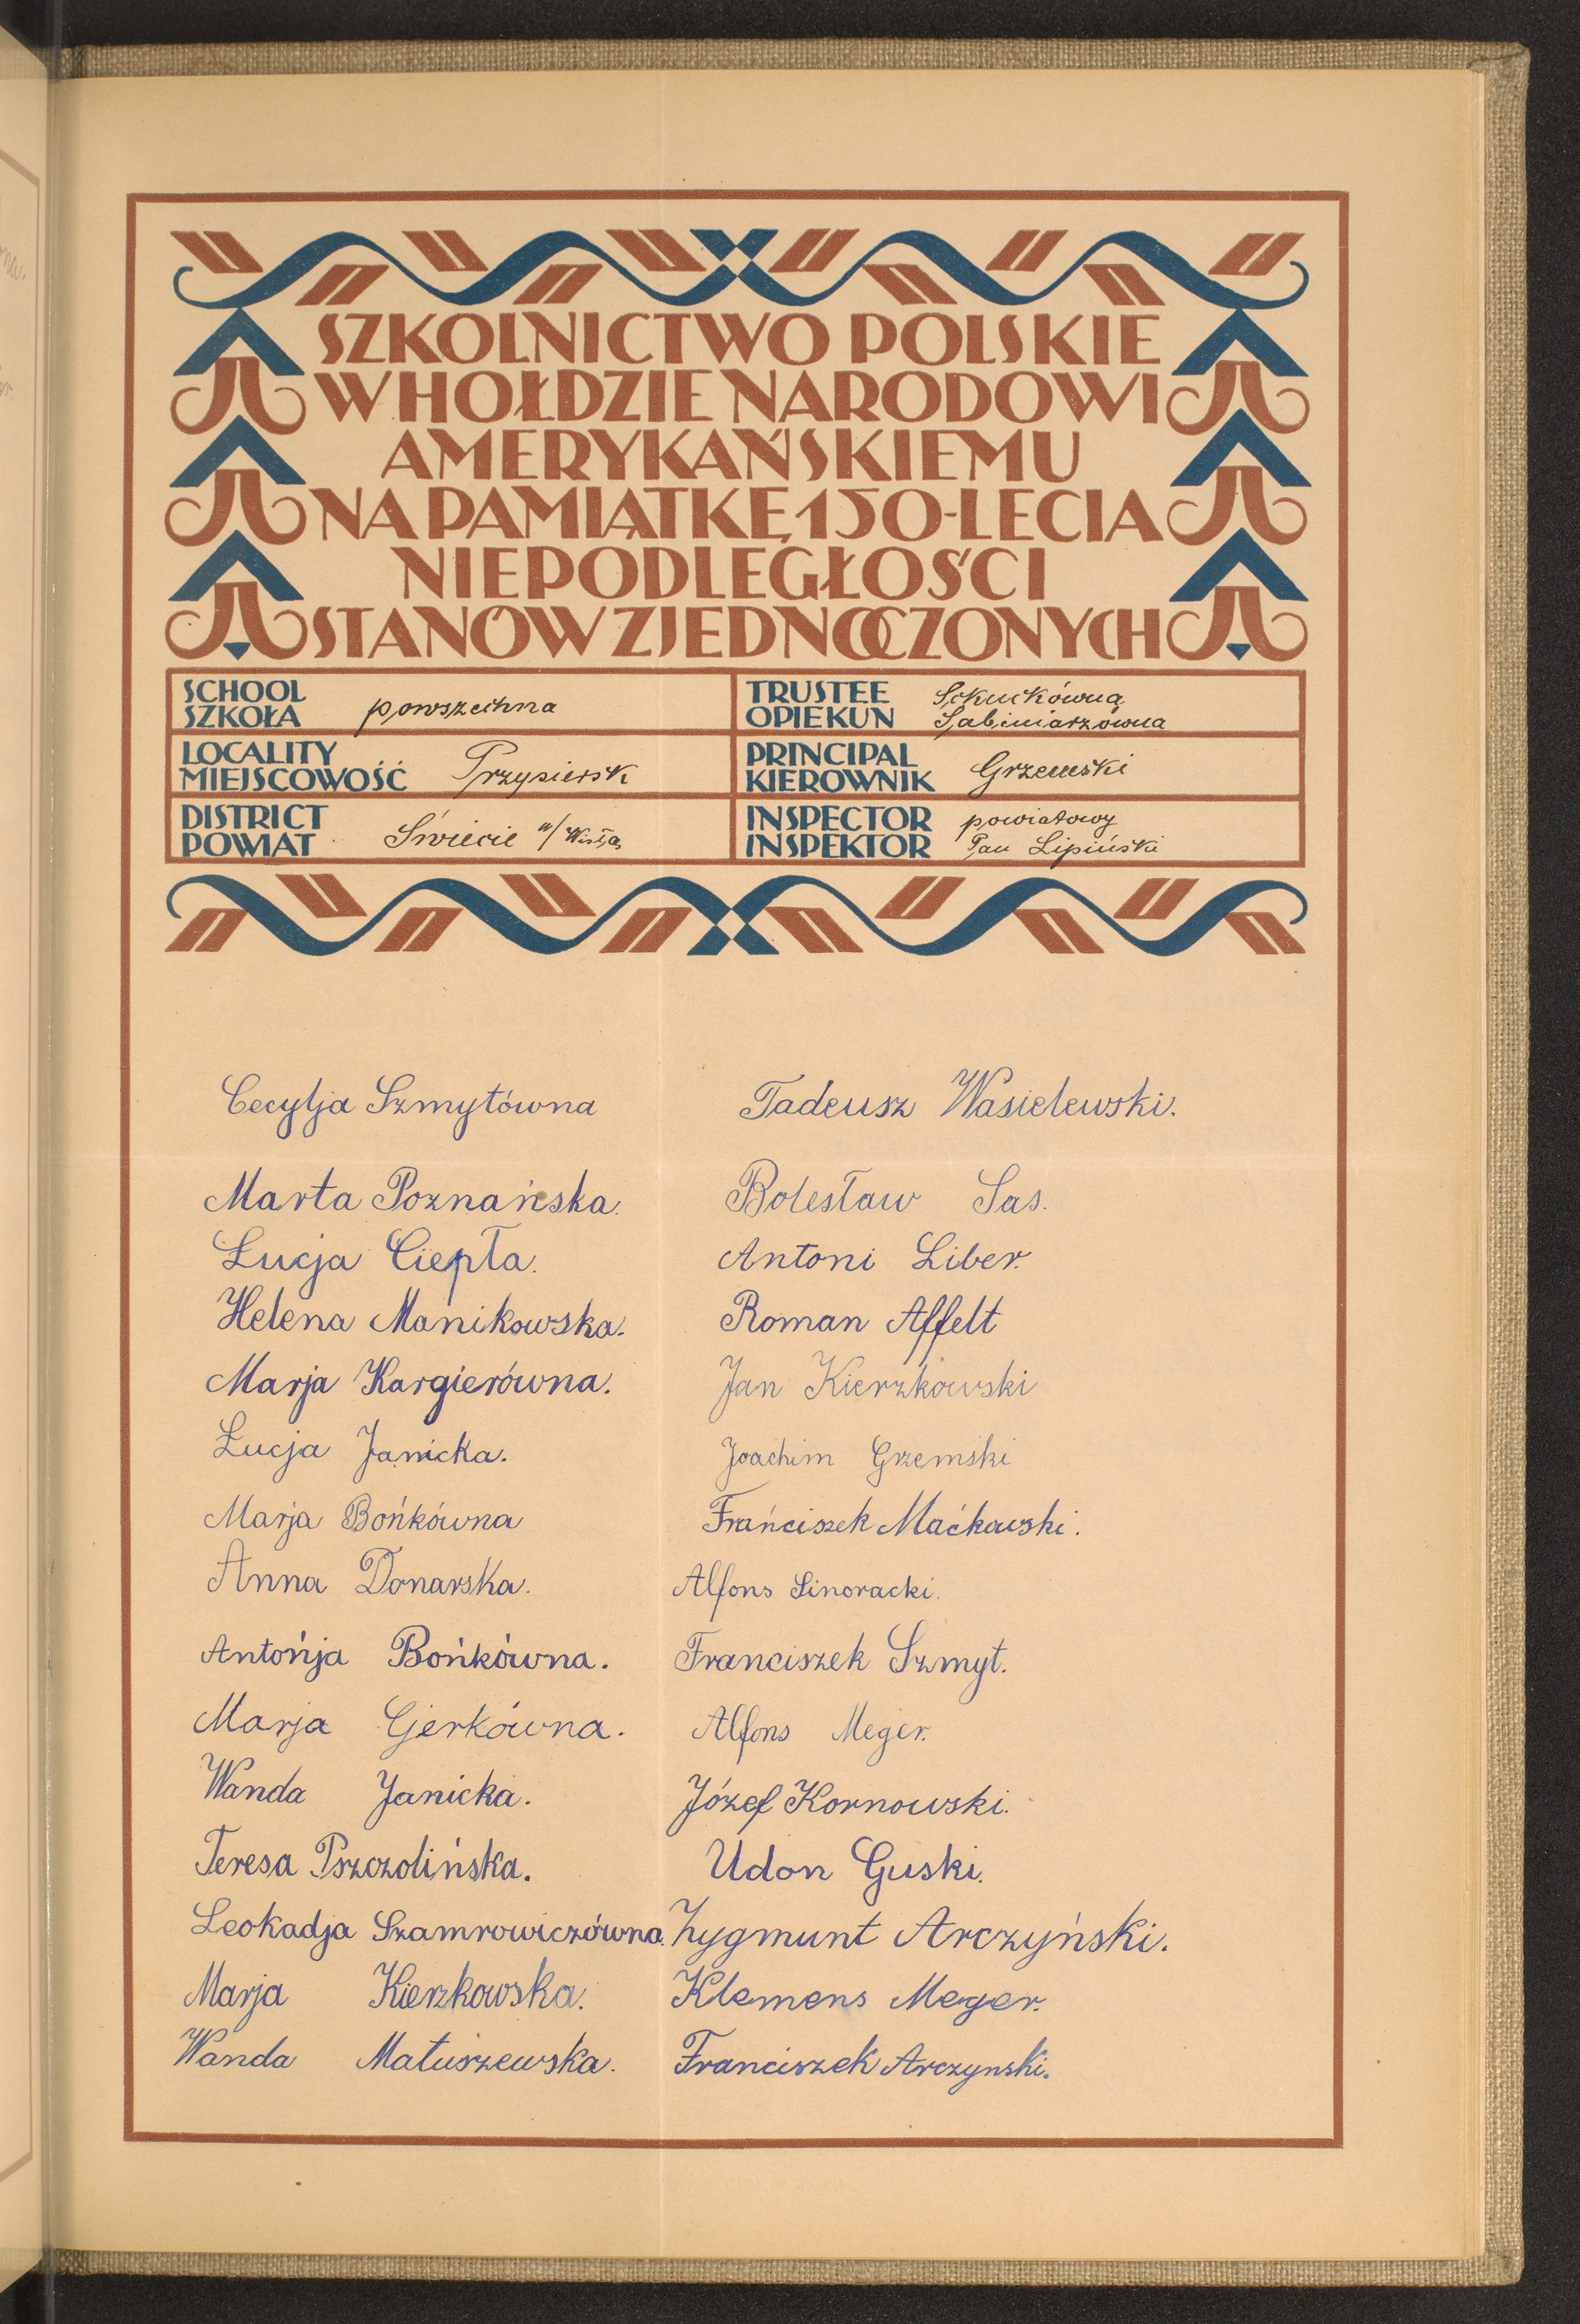 SZKOLNICTWO POLSKIE
W HOŁDZIE NARODOWI
AMERYKAŃSKIEMU
NA PAMIĄTKĘ 150-LECIA
NIEPODLEGŁOŚCI
STANÓW ZJEDNOCZONYCH
SCHOOL
SZKOŁA powszechna
TRUSTEE
OPIEKUN
LOCALITY
MIEJSCOWOŚĆ Przysiersk
PRINCIPAL
KIEROWNIK Grzemski
DISTRICT
POWIAT Świecie n/Wisłą
INSPECTOR powiatowy
INSPEKTOR Pan Lipiński
Cecylja Szmytówna
Marta Poznańska.
Łucja Ciepła.
Helena Manikowska.
Marja Kargierówna.
Łucja Janicka.
Marja Bońkówna
Anna Donarska.
Antońja Bońkówna.
Marja Gjerkówna.
Wanda Janicka.
Teresa Pszczolińska.
Leokadja Szamrowiczówna.
Marja Kierzkowska.
Wanda Matuszewska.
Tadeusz Wasielewski.
Bolesław Sas.
Antoni Liber.
Roman Affelt
Jan Kierzkowski
Joachim Grzemski
Frańciszek Maćkowski.
Alfons Sinoracki.
Franciszek Szmyt.
Alfons Meger.
Józef Kornowski.
Udon Guski.
Zygmunt Arczyński.
Klemens Meger.
Franciszek Arczynski.